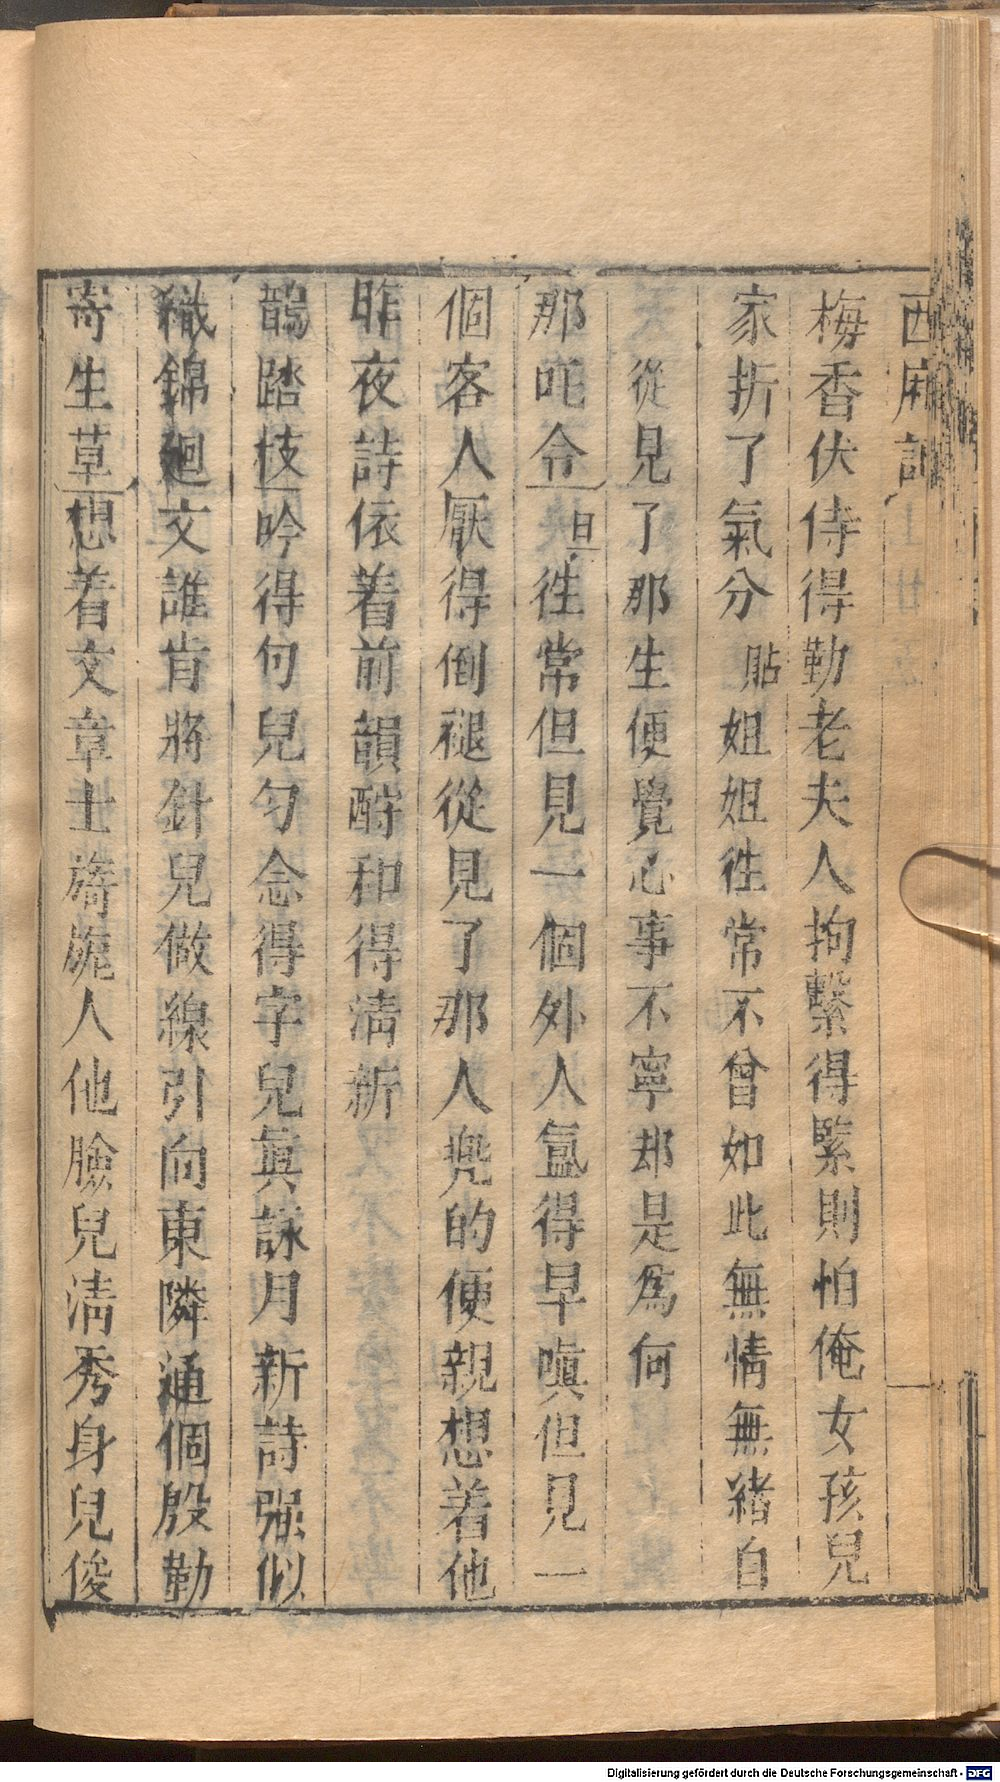 西廂記
梅香伏侍得勤老夫人拘繫得緊則怕俺女孩兒
家折了氣分 貼 姐姐徃常不曾如此無情無緒自
從見了那生便覺心事不寧却是爲何
那吒令 旦 徃常但見一個外人氳得早嗔但見一
個客人厭得倒褪從見了那人兠的便親想着他
昨夜詩依着前韻酧和得淸新
鵲踏枝吟得句兒勻念得字兒眞詠月新詩强似
織錦廻文誰肯將針兒做線引向東隣通個殷勤
寄生草想着文章士旖旎人他臉兒淸秀身兒俊
Digitalisierung gefördert durch die Deutsche Forschungsgemeinschaft - DFG